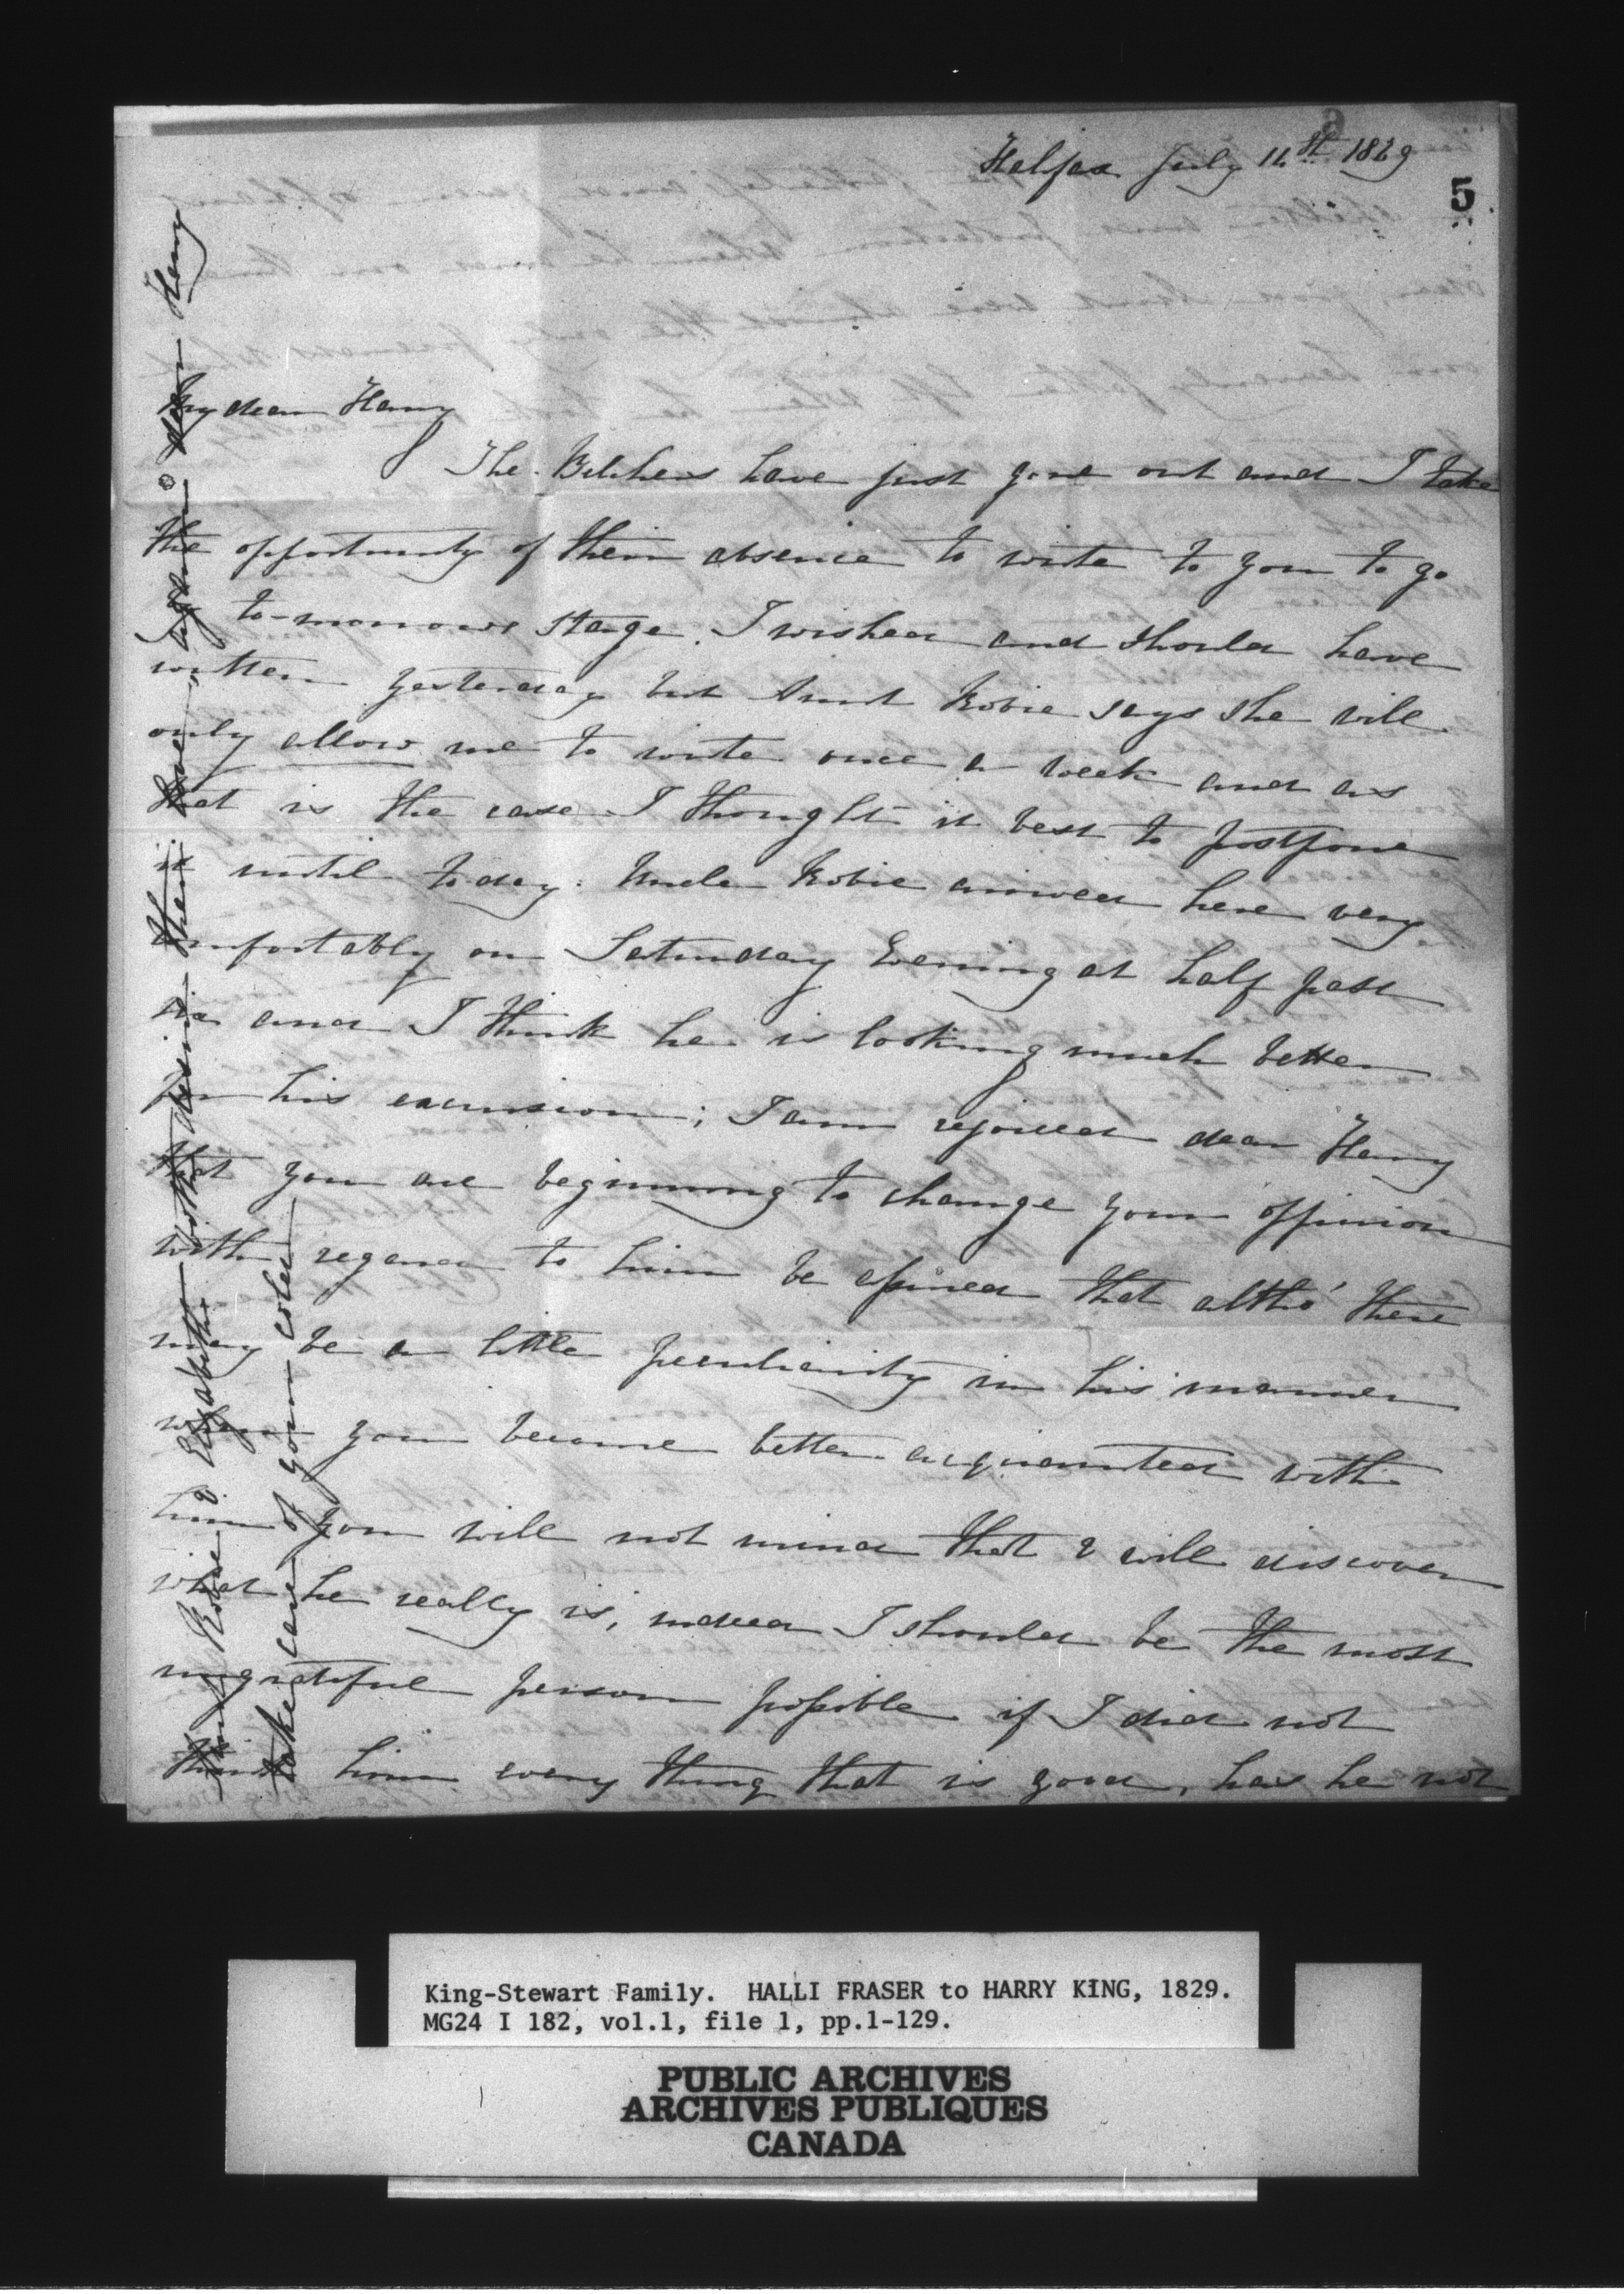 Halifax July 11th 1829
5
My dear Harry
The Belchers have just gone out and I take
the opportunity of their absence to write to you to go
by to-morrows stage. I wished and should have
written yesterday but Aunt Robie says she will
only allow me to write once a week and as
that is the case I thought it best to postpone
it until to day. Uncle Robie arrived here very
comfortably on Saturday Evening at half past
six and I think he is looking much better
for his excursion; I am rejoiced dear Harry
that you are beginning to change your oppinion
with regard to him be assured that altho' there
may be a little peculiarity in his manner
when you become better acquainted with
him you will not mind that & will discover
what he really is, indeed I should be the most
ungrateful person possible if I did not
think him every thing that is good, has he not
Aunt Robie & Elizabeth both desire their love again dear Harry
take care of your cold
King-Stewart Family. HALLI FRASER to HARRY KING, 1829.
MG24 I 182, vol.1, file 1, pp.1-129.
PUBLIC ARCHIVES
ARCHIVES PUBLIQUES
CANADA